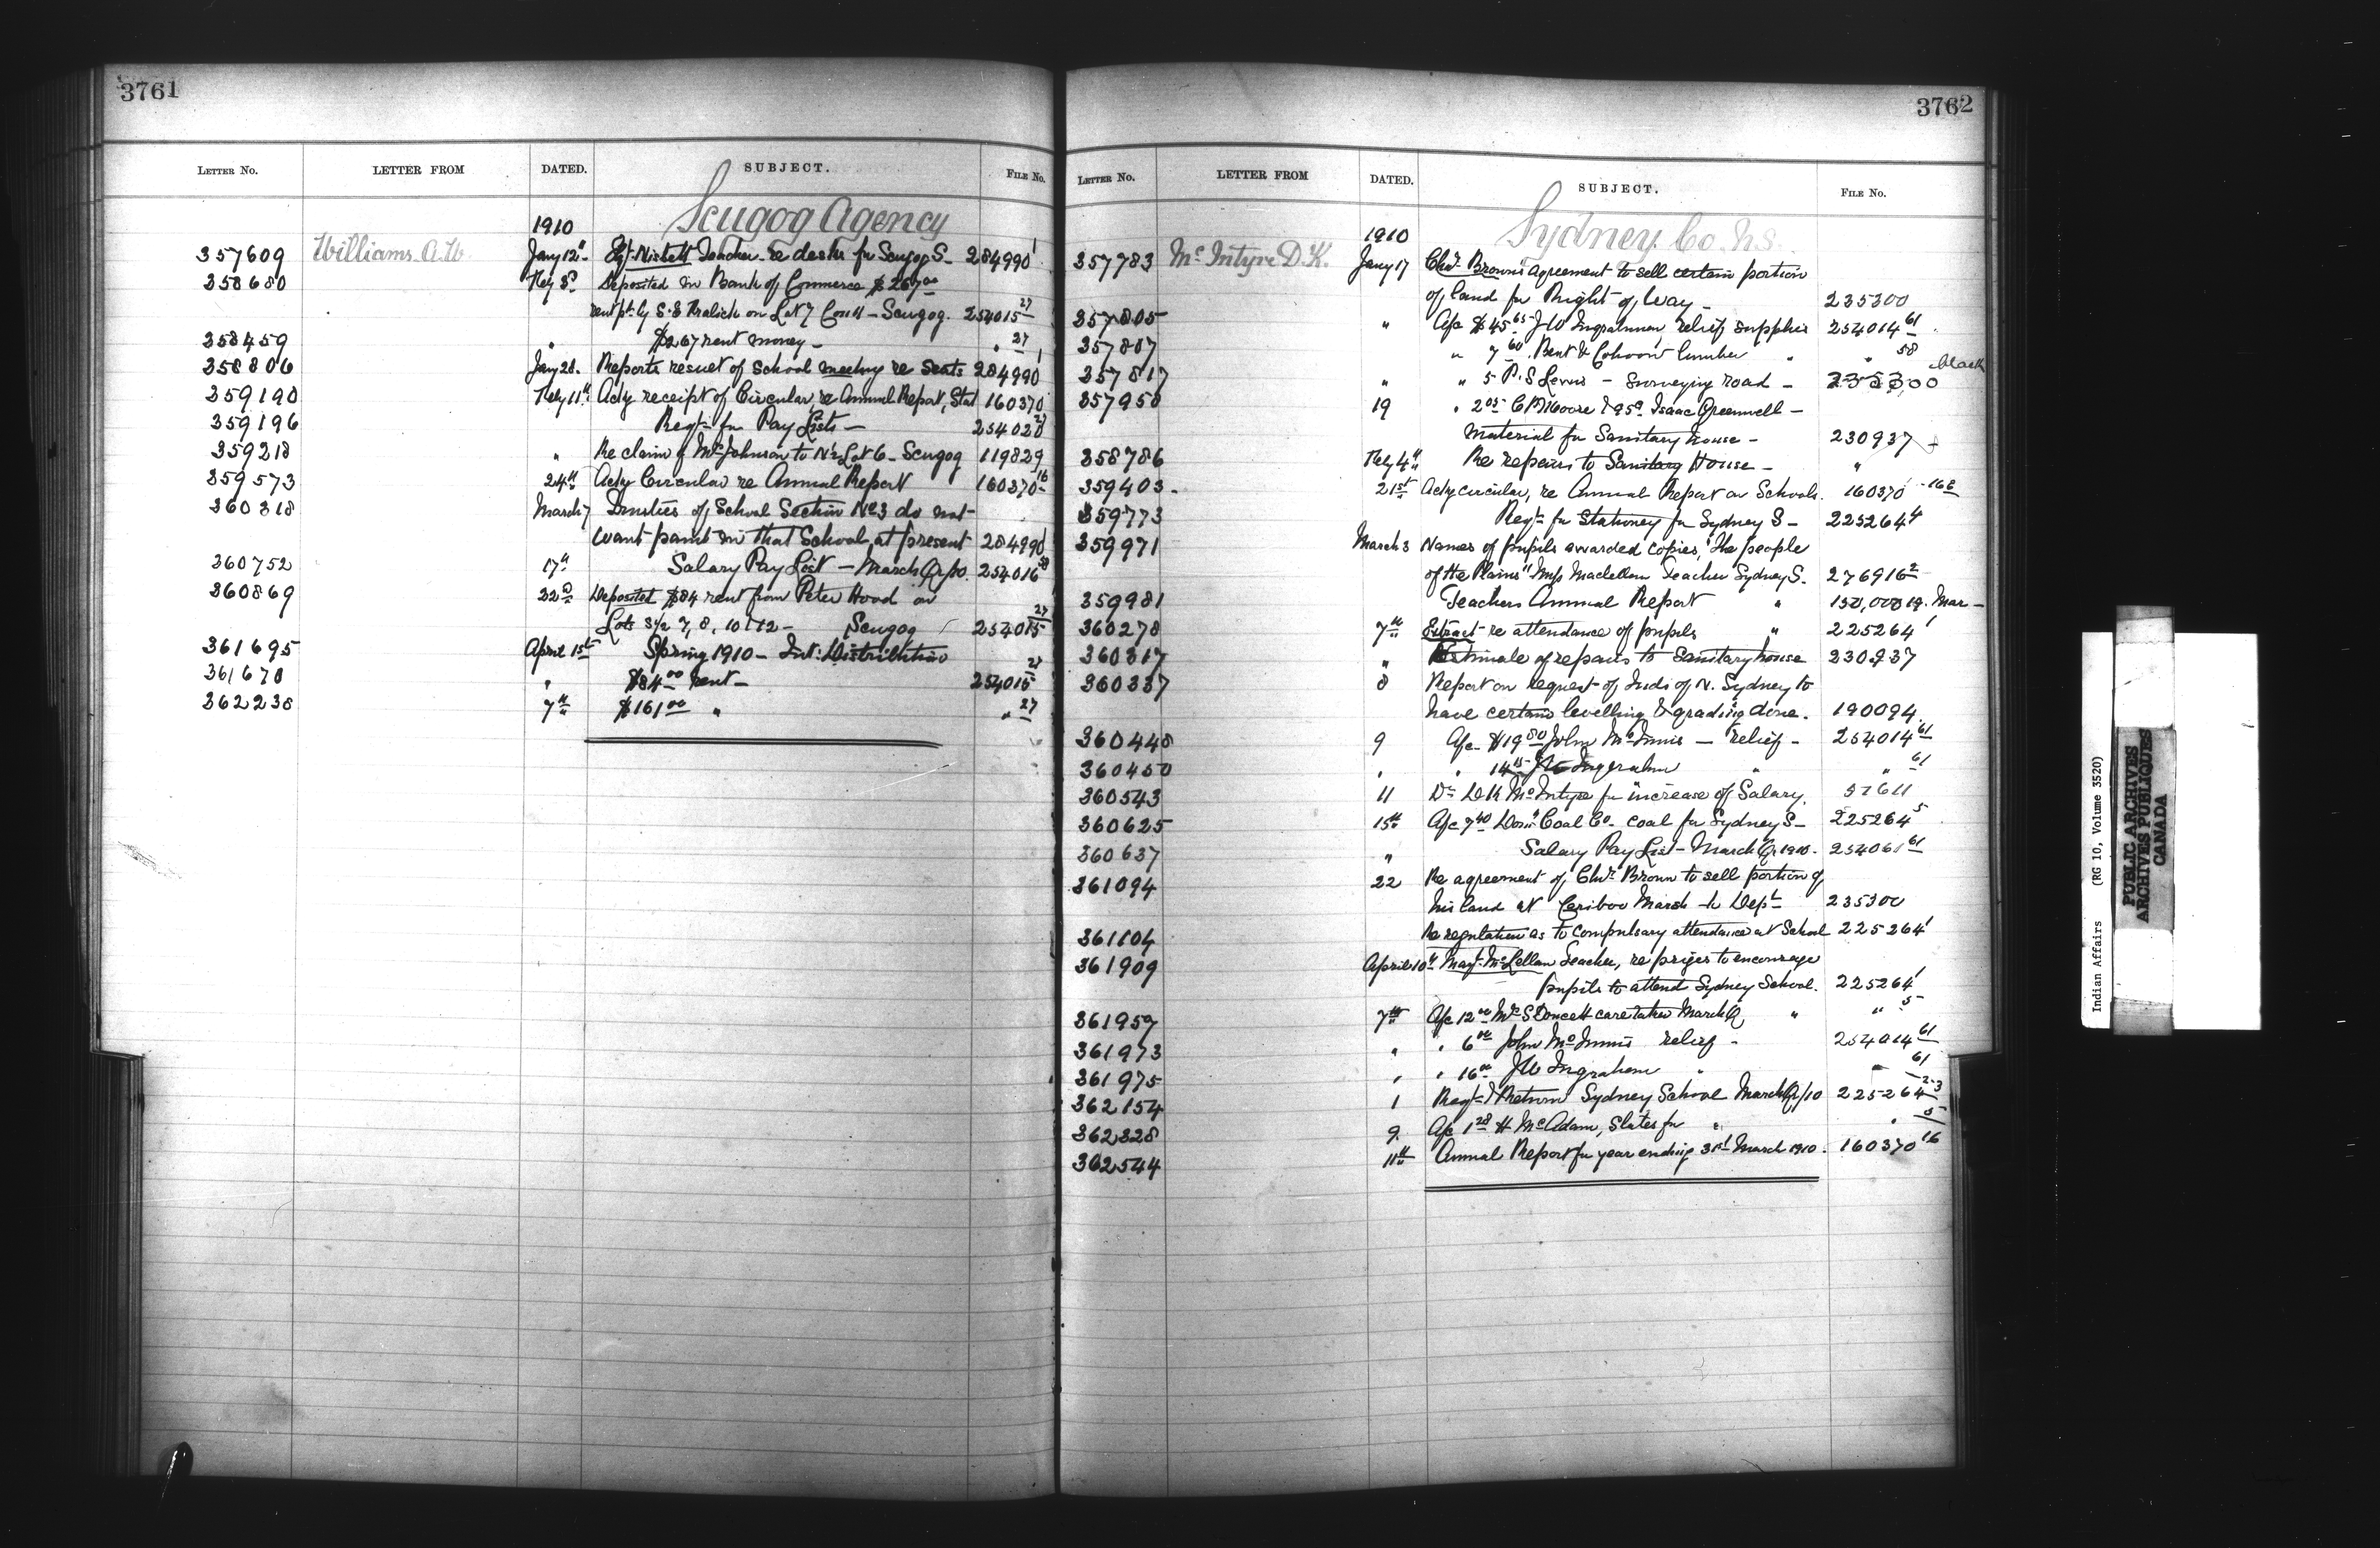 3761
LETTER No. LETTER FROM DATED. SUBJECT. FILE No.
Scugog Agency
1910
357609 Williams A.W. Jany 12" Teacher re desks for Scugog S- 284990 1
358680 Feby 8th Deposited in Bank of Commerce $267 00
rent pt. by S.S. on Lot 7 Con 11 - Scugog. 254015 27
358459 " $267 rent money - " 27
358806 Jany 28. Reports result of School meeting re Seats 284990 1
359190 Feby 11" Ackg receipt of Circular, re Annual Report, Stat 160370
359196 Reqt. for Pay Lists - 254020 27
359218 " Re claim of Johnson to N½ Lot 6 - Scugog 119829
359573 24th Ackg Circular re Annual Report 160370 16
360318 March 7 Trustees of School Section No 3 do not
want paint in that School, at present 284990 1
360752 17th Salary Pay List - March Qr/10. 254016
360869 22nd Deposited $84 rent from Peter Hood on
Lots S½ 7, 8, 10 & 12 - Scugog 254015 27
361695 April 1st Spring 1910 - Int: Distribution
361678 " $84 00 rent - 254015 27
362238 7th $161 00 " " 27
3762
LETTER No. LETTER FROM DATED. SUBJECT. FILE No.
Sydney Co. N.S.
1910
357783 McIntyre D.K. Jany 17 Chr. Brown's agreement to sell certain portion
of land for Right of Way - 235300
357805 " A/c $45 65 J W Ingraham, relief supplies 254014 61
357807 " 7 60 Bent & Cohoon lumber " " 58
357817 " " 5 P.S Lewis - surveying road - 235300 black
357950 19 " 2 05 C B Moore & 95c Isaac Greenwell -
material for Sanitary house - 230937
358786 Feby 4th Re repairs to Sanitary House - "
359403 21st Ackg circular, re Annual Report on Schools. 160370 - 16
359773 Reqt. for Stationery for Sydney S - 225264 4
359971 March 3 Names of pupils awarded copies, "The people
of the Plains" Miss Maclellan Teacher Sydney S. 276916 2
359981 Teachers Annual Report " 150,000 19. Mar -
360278 7th Extract re attendance of pupils " 225264 1
360317 " Estimate of repairs to Sanitary house 230937
360337 8 Report on request of Inds of N. Sydney to
have certain levelling & grading done. 190094
360448 9 A/c $19 80 John McInnis - relief - 254014 61
360450 " " 14 15 J W Ingraham " " 61
360543 11 Dr D K McIntyre for increase of Salary. 57611
360625 15th A/c 7 40 Domn Coal Co - coal for Sydney S - 225264 5
360637 " Salary Pay List - March Qr 1910. 254061 61
361094 22 Re agreement of Chr. Brown to sell portion of
his land at Caribou Marsh to Dept 235300
361104 Re regulation as to compulsary attendance at School 225264 1
361909 April 10th Margt McLellan Teacher, re prizes to encourage
pupils to attend Sydney School. 225264 1
361957 7th A/c 12 00 Mrs S Doucett caretaker March Q " " 5
361973 " " 6 00 John McInnis relief - 254014 61
361975 " " 16 00 J W Ingraham " " 61
362154 1 Reqt & Return Sydney School March Qr/10 225264 2-3
362328 9. A/c 1 28 H McAdam, Slates for " " 5
362544 11th Annual Report for year ending 31st March 1910. 160370 16
Indian Affairs (RG 10, Volume 3520)
PUBLIC ARCHIVES
ARCHIVES PUBLIQUES
CANADA